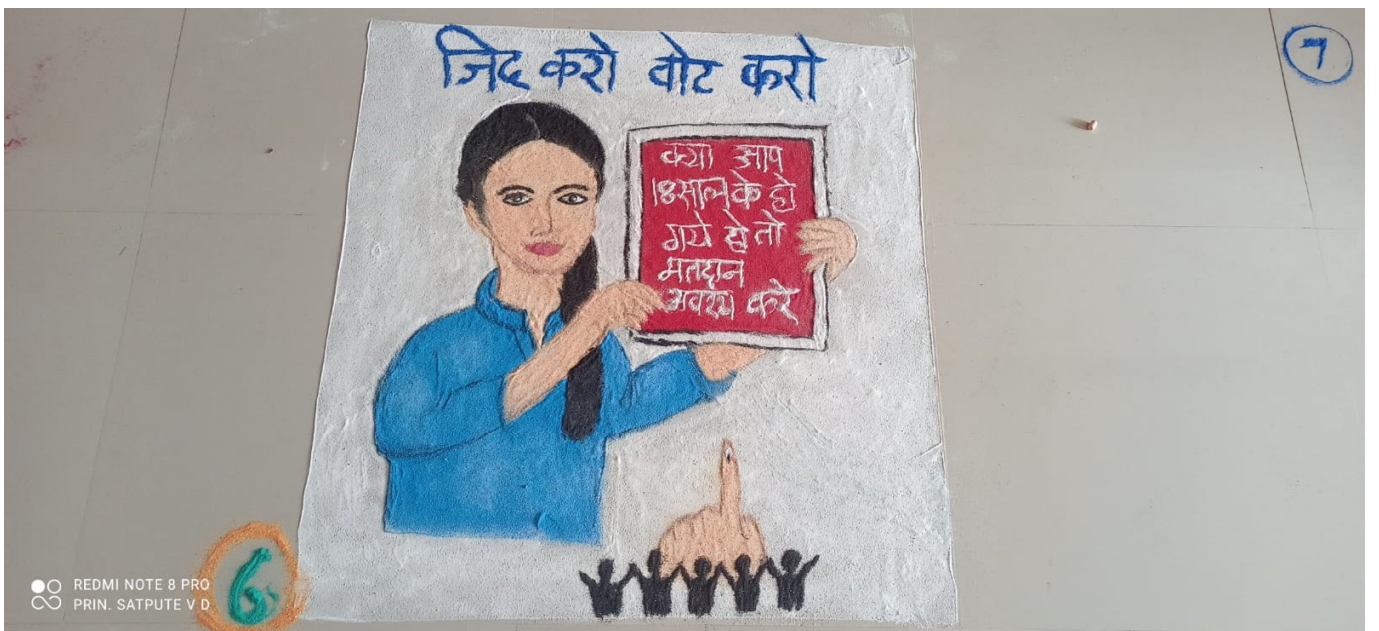 जिद करो वोट करो
7
क्या आप
18 साल के हो
गये हो तो
मतदान
अवश्य करे
6.
REDMI NOTE 8 PRO
PRIN. SATPUTE V D